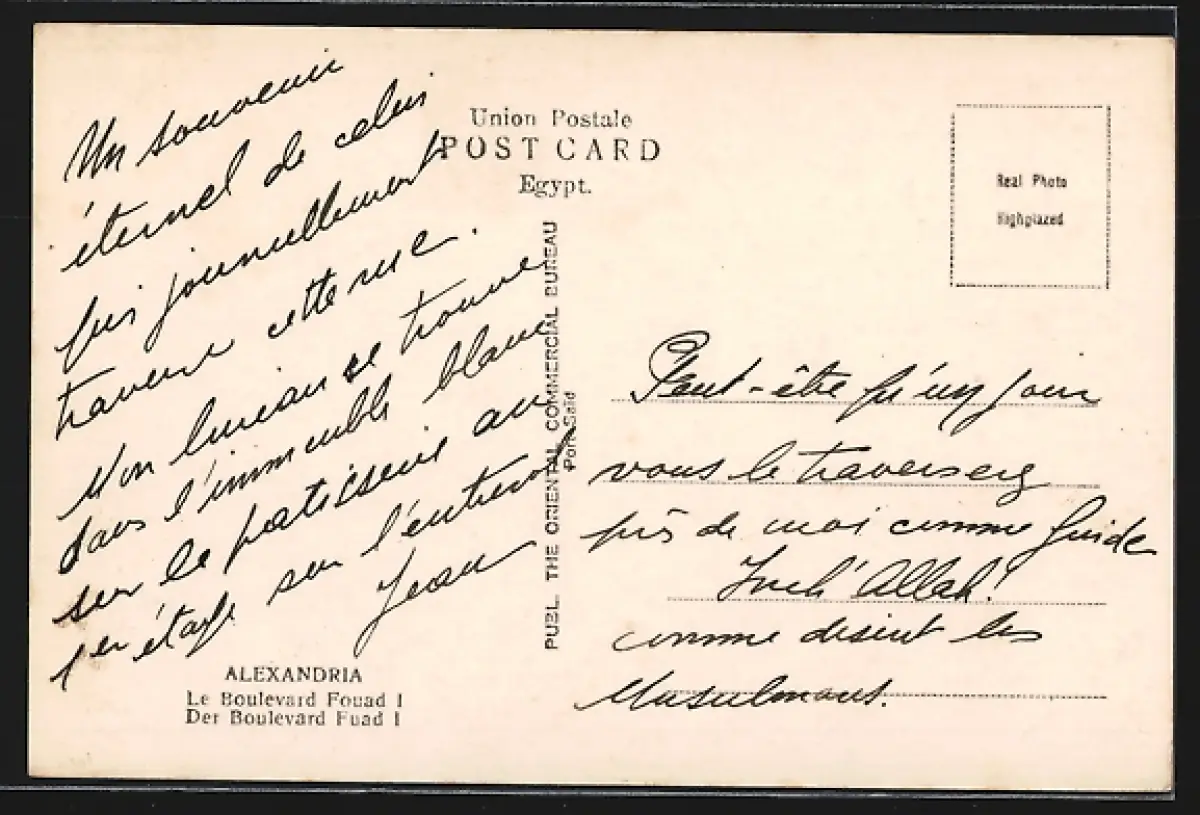 Un souvenir
éternel de celui
qui journellement
traverse cette rue.
Mon bureau se trouve
dans l'immeuble blanc
sur la patisserie au
1er étage sur l'entresol
Jean
ALEXANDRIA
Le Boulevard Fouad I
Der Boulevard Fuad I
Union Postale
POST CARD
Egypt.
PUBL. THE ORIENTAL COMMERCIAL BUREAU
Port-Said
Real Photo
Highglazed
Peut-être qu'un jour
vous le traverserez
près de moi comme Guide
Inch'Allah!
comme disent les
Musulmans.